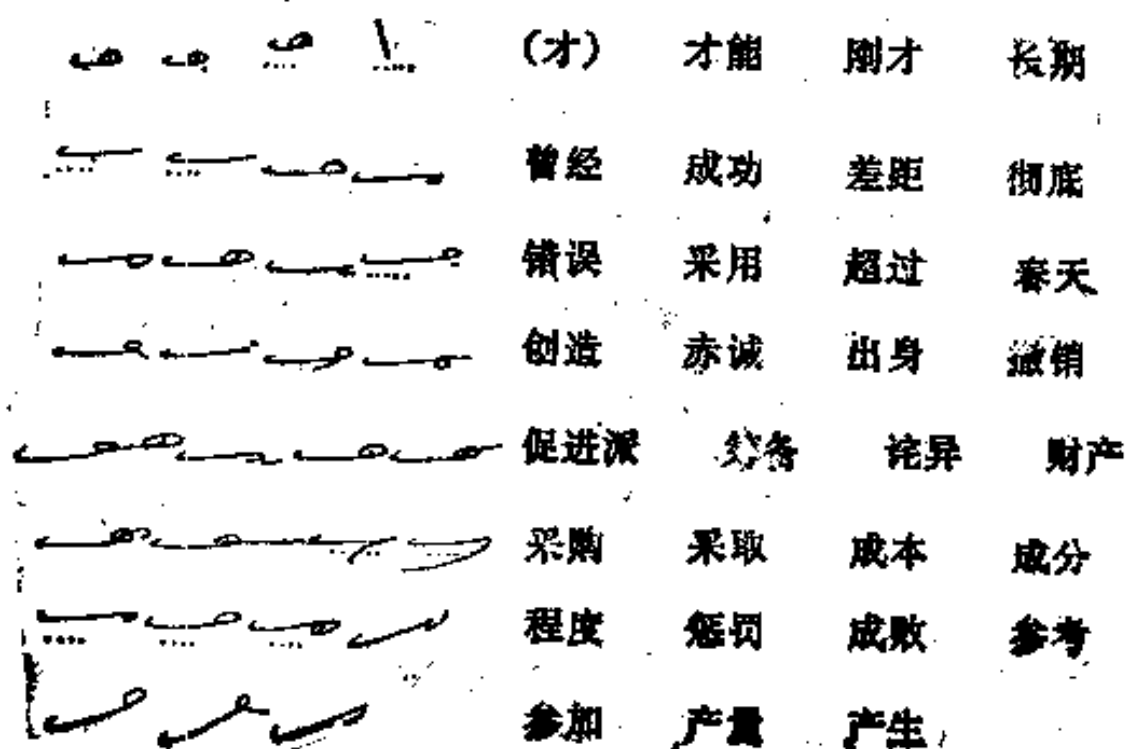 (才) 才能 刚才 长期
曾经 成功 差距 彻底
错误 采用 超过 春天
创造 赤诚 出身 撤销
促进派 诧异 财产
采购 采取 成本 成分
程度 惩罚 成败 参考
参加 产量 产生